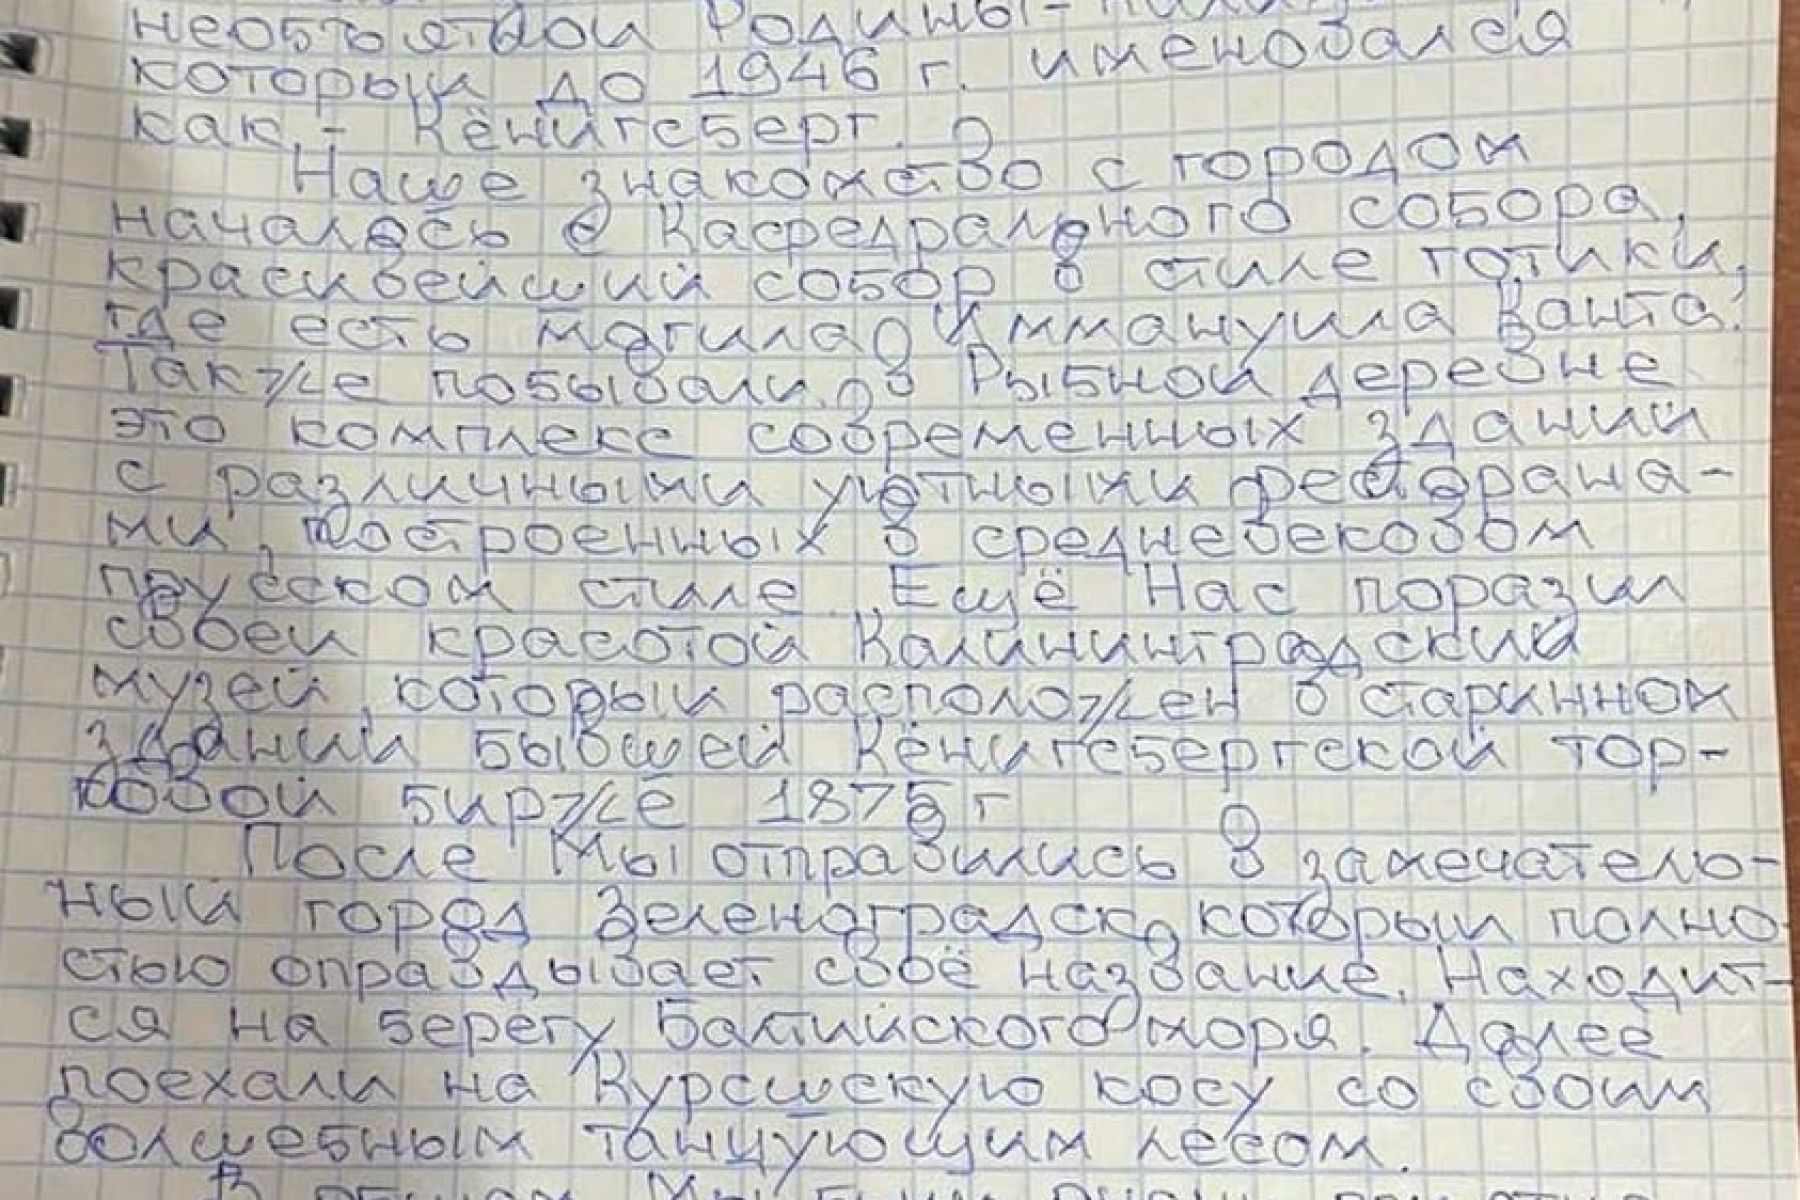 необъятной Родины -
который до 1946 г. именовался
как - Кёнигсберг.
Наше знакомство с городом
началось с Кафедрального собора,
красивейший собор в стиле готики,
где есть могила Иммануила Канта.
Также побывали в Рыбной деревне
это комплекс современных зданий
с различными уютными ресторана-
ми, построенных в средневековом
прусском стиле. Ещё Нас поразил
своей красотой Калининградский
музей, который расположен в старинном
здании бывшей Кёнигсбергской тор-
говой бирже 1875 г
После Мы отправились в замечатель-
ный город Зеленоградск, который полно-
стью оправдывает своё название. Находит-
ся на берегу Балтийского моря. Далее
поехали на Куршскую косу со своим
волшебным танцующим лесом.
В общем Мы были очень